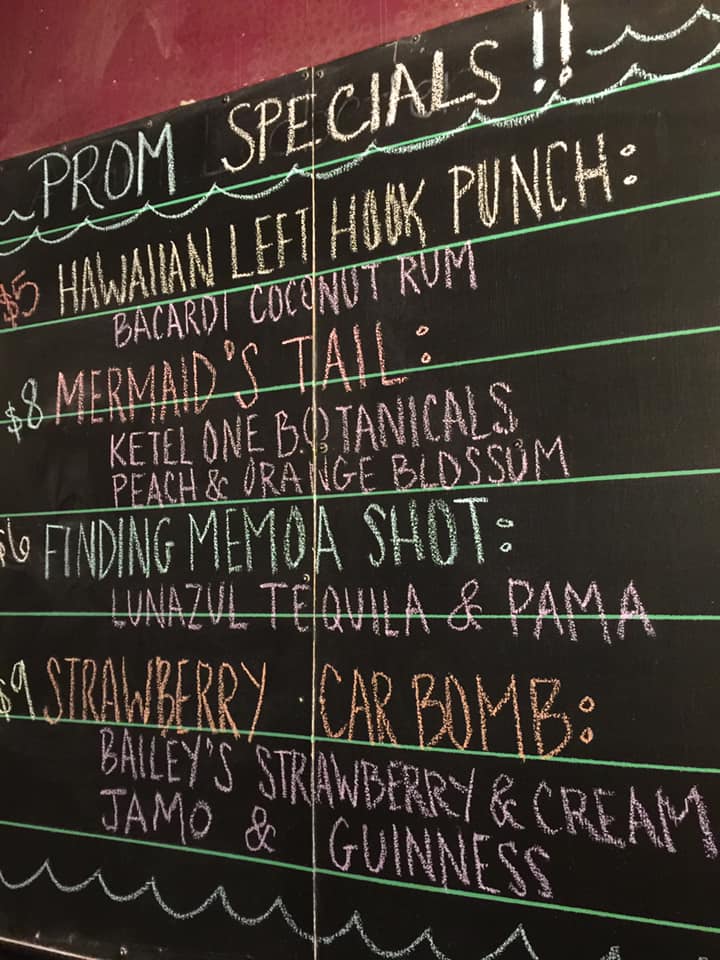 PROM SPECIALS!!
$5 HAWAIIAN LEFT HOOK PUNCH:
BACARDI COCONUT RUM
$8 MERMAID'S TAIL:
KETEL ONE BOTANICALS
PEACH & ORANGE BLOSSOM
$6 FINDING MEMOA SHOT:
LUNAZUL TEQUILA & PAMA
$9 STRAWBERRY CAR BOMB:
BAILEY'S STRAWBERRY & CREAM
JAMO & GUINNESS